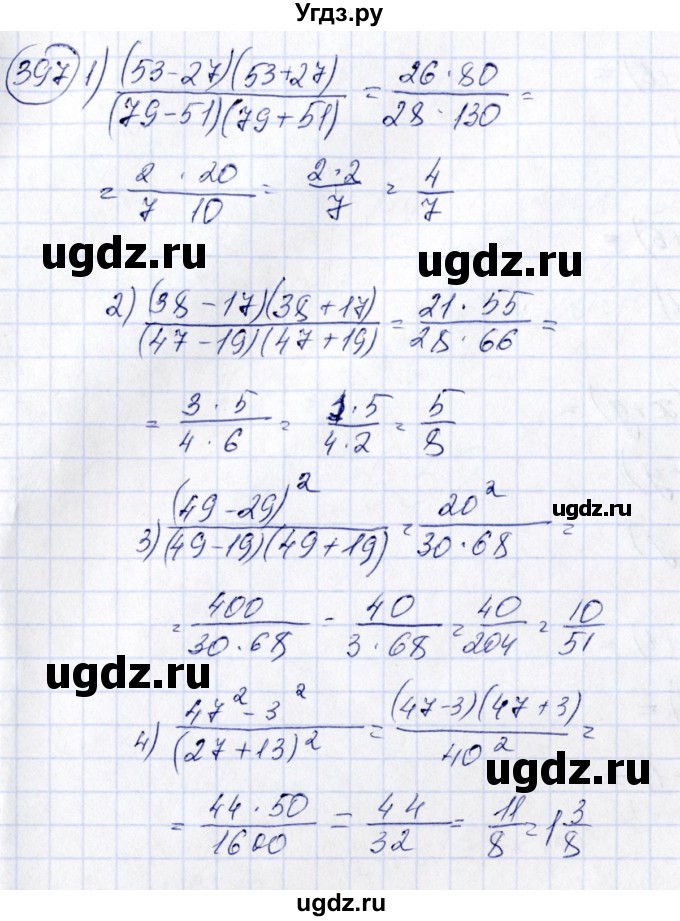 Угдз.ру
397 1) (53-27)(53+27) / (79-51)(79+51) = 26·80 / 28·130 =
= 2 · 20 / 7 10 = 2·2 / 7 = 4 / 7
ugdz.ru
ugdz.ru
2) (38-17)(38+17) / (47-19)(47+19) = 21·55 / 28·66 =
= 3·5 / 4·6 = 1·5 / 4·2 = 5 / 8
ugdz.ru
3) (49-29)² / (49-19)(49+19) = 20² / 30·68 =
= 400 / 30·68 - 40 / 3·68 = 40 / 204 = 10 / 51
ugdz.ru
4) 47²-3² / (27+13)² = (47-3)(47+3) / 40² =
ugdz.ru
= 44·50 / 1600 = 44 / 32 = 11 / 8 = 1 3/8
ugdz.ru